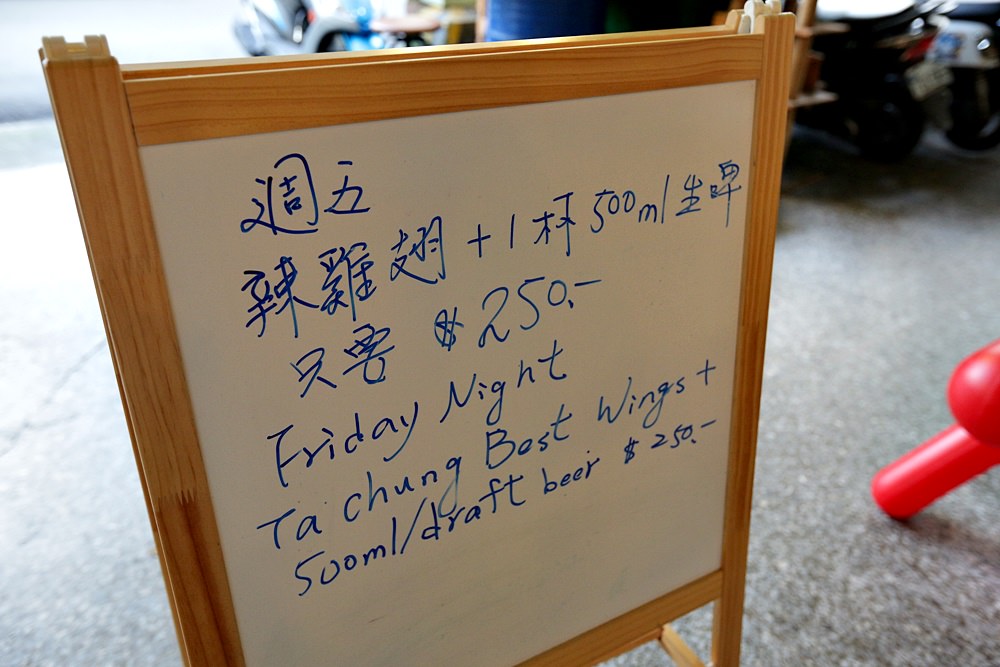 週五
辣雞翅 + 1 杯 500ml 生啤
只需 $250.-
Friday Night
Ta chung Best Wings +
500ml/draft beer $250.-